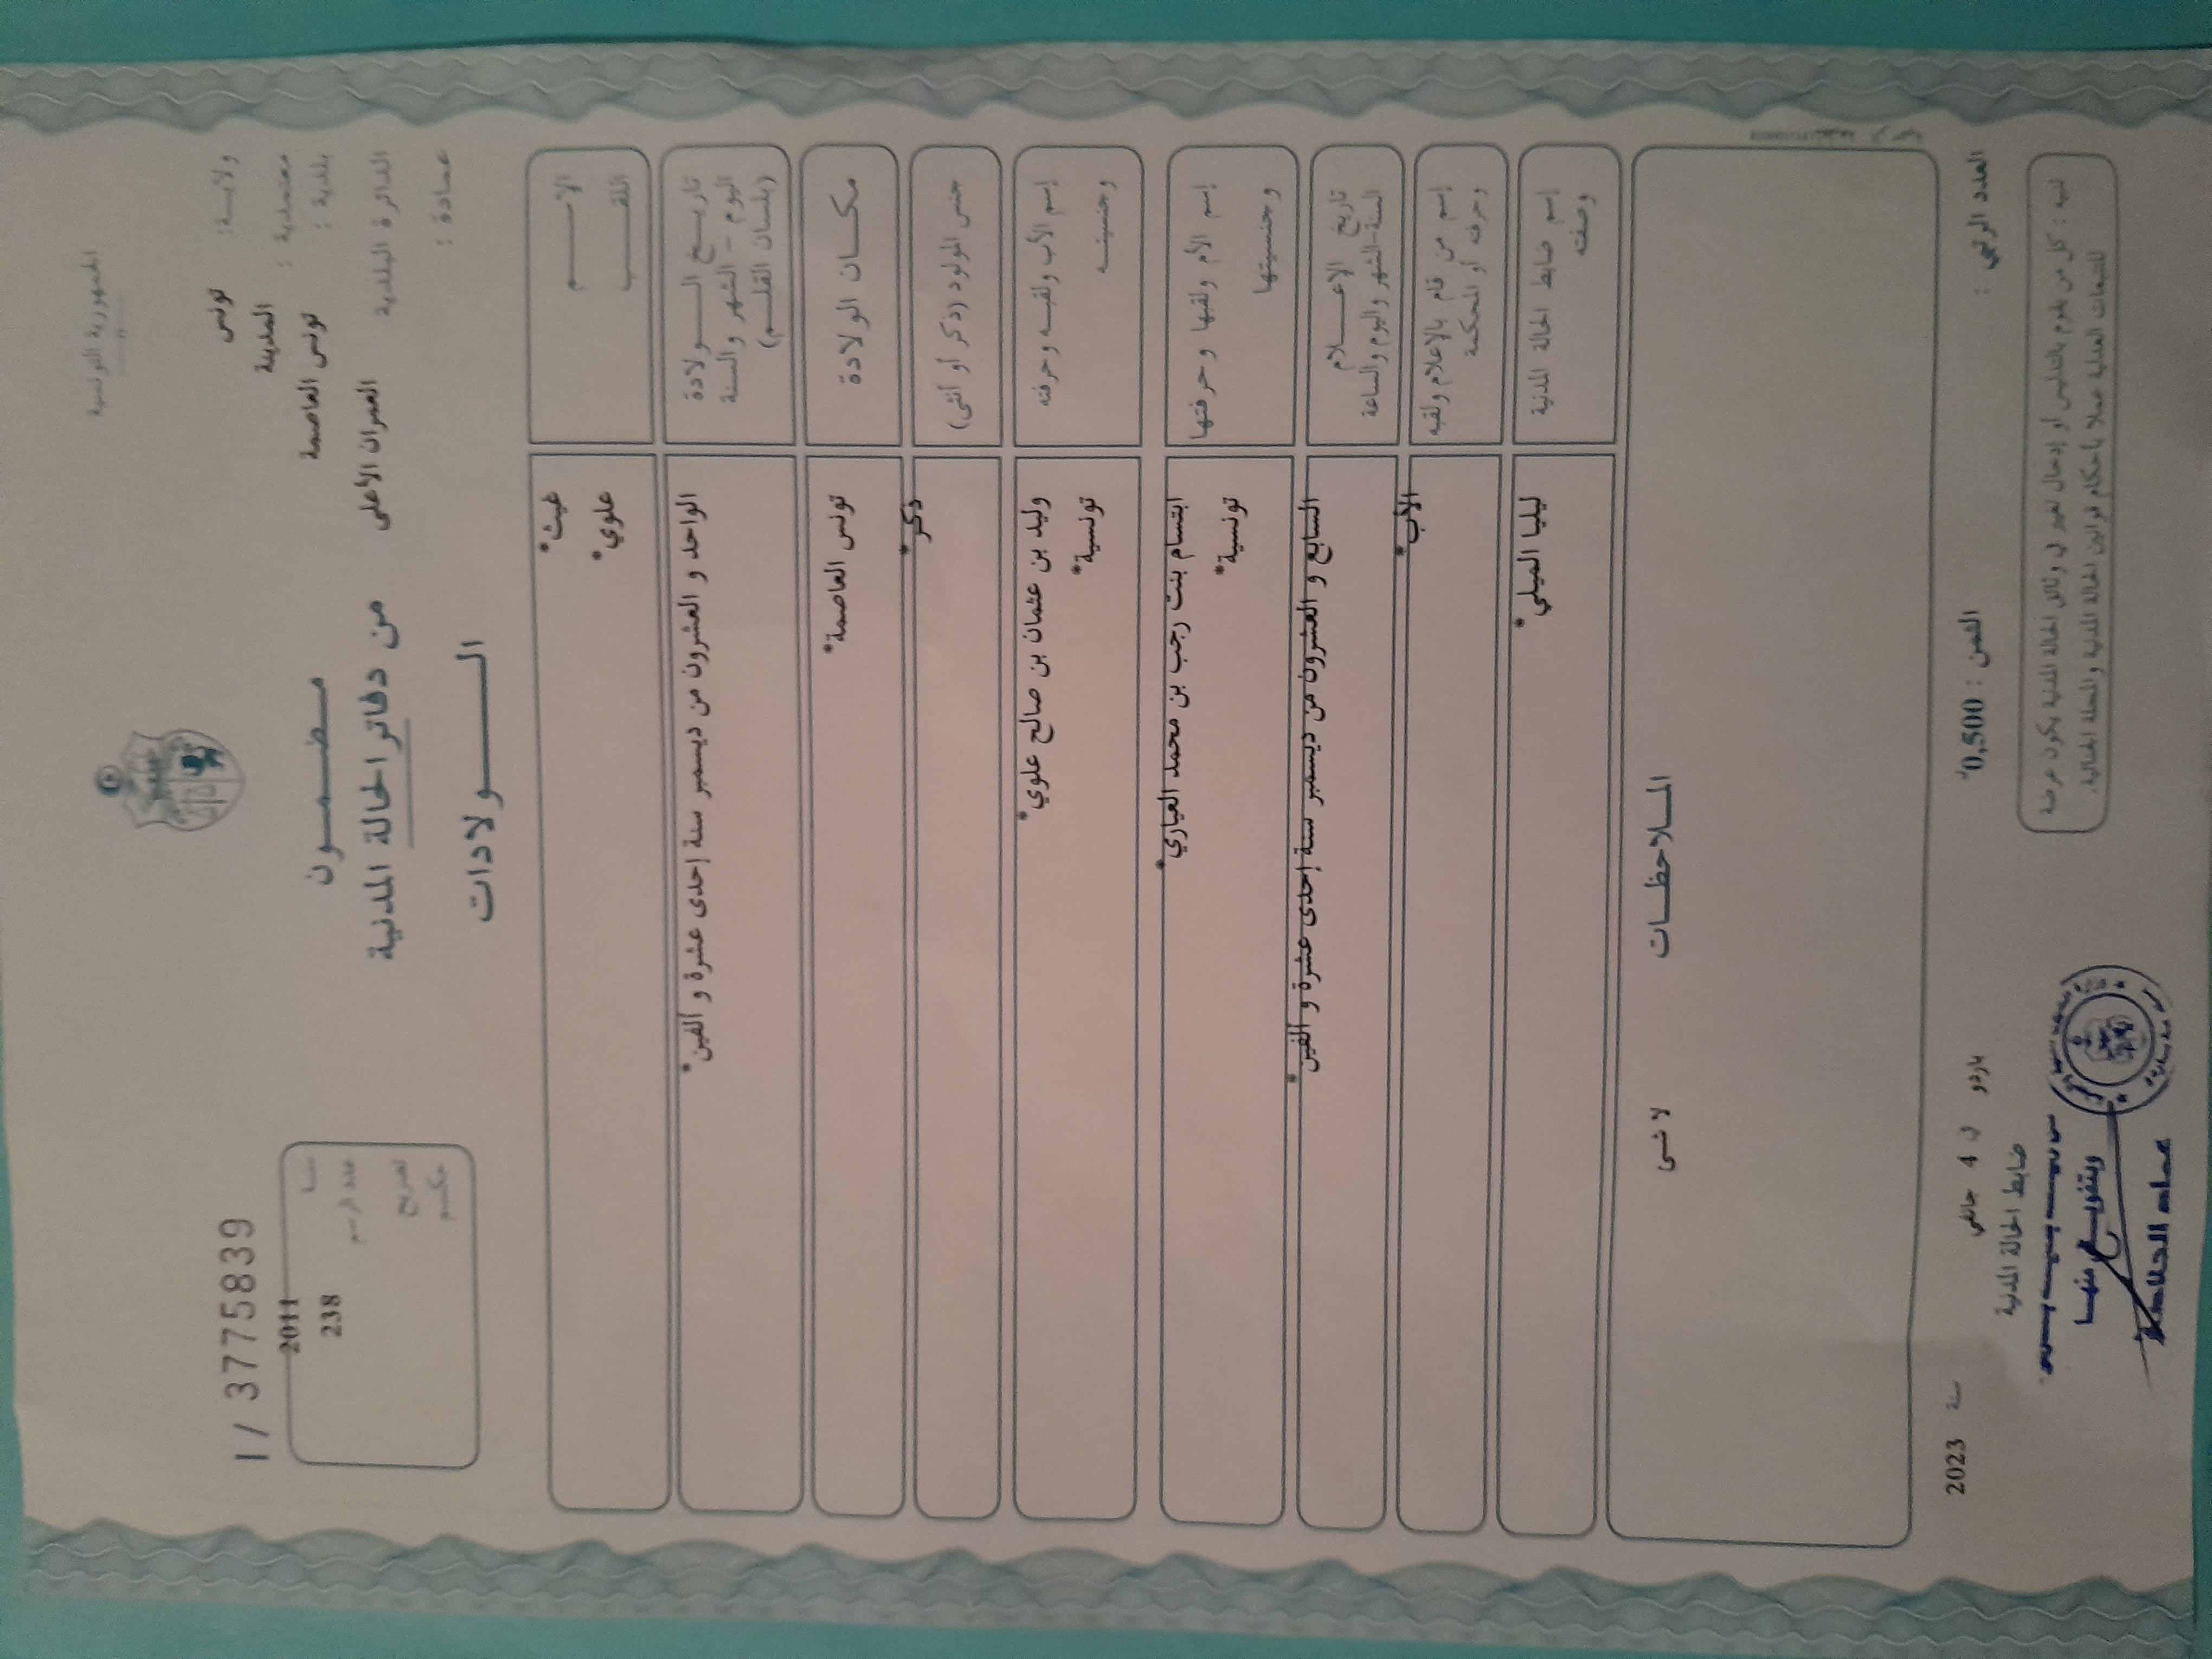 الجمهورية التونسية
ولايـــة: تونس
معتمدية : المدينة
بلدية : تونس العاصمة
الدائرة البلدية العمران الأعلى
عمادة :
I / 3775839
سنة 2011
عدد الرسم 238
تصريح
حكم
مـضـمـون
من دفاتر الحالة المدنية
الـــولادات
الإســـم غيث*
اللقـــب علوي*
تاريـــخ الـــولادة
اليوم - الشهر والسنة
(بلسان القلـــم)
الواحد و العشرون من ديسمبر سنة إحدى عشرة و ألفين*
مكـــان الولادة تونس العاصمة*
جنس المولود (ذكر أو أنثى) ذكر*
إسم الأب ولقبـه وحرفته وليد بن عثمان بن صالح علوي*
وجنسيتـه تونسية*
إسم الأم ولقبها وحرفتها ابتسام بنت رجب بن محمد العياري*
وجنسيتها تونسية*
تاريخ الإعـــلام
السنة-الشهر واليوم والساعة
السابع و العشرون من ديسمبر سنة إحدى عشرة و ألفين*
إسم من قام بالإعلام ولقبه الأب*
وحرفته أو المحكمة
إسم ضابط الحالة المدنية ليليا الميلي*
وصفته
الملاحظـــات
لا شى
العدد الرتبي : الثمن : 0,500 باردو في 4 جانفي سنة 2023
ضابط الحالة المدنية
تنبيه : كل من يقوم بالتدليس أو إدخال تغيير في وثائق الحالة المدنية يكون عرضة
للتتبعات العدلية عملا بأحكام قوانين الحالة المدنية والمجلة الجنائية.
وبتفويـــض منهـــا